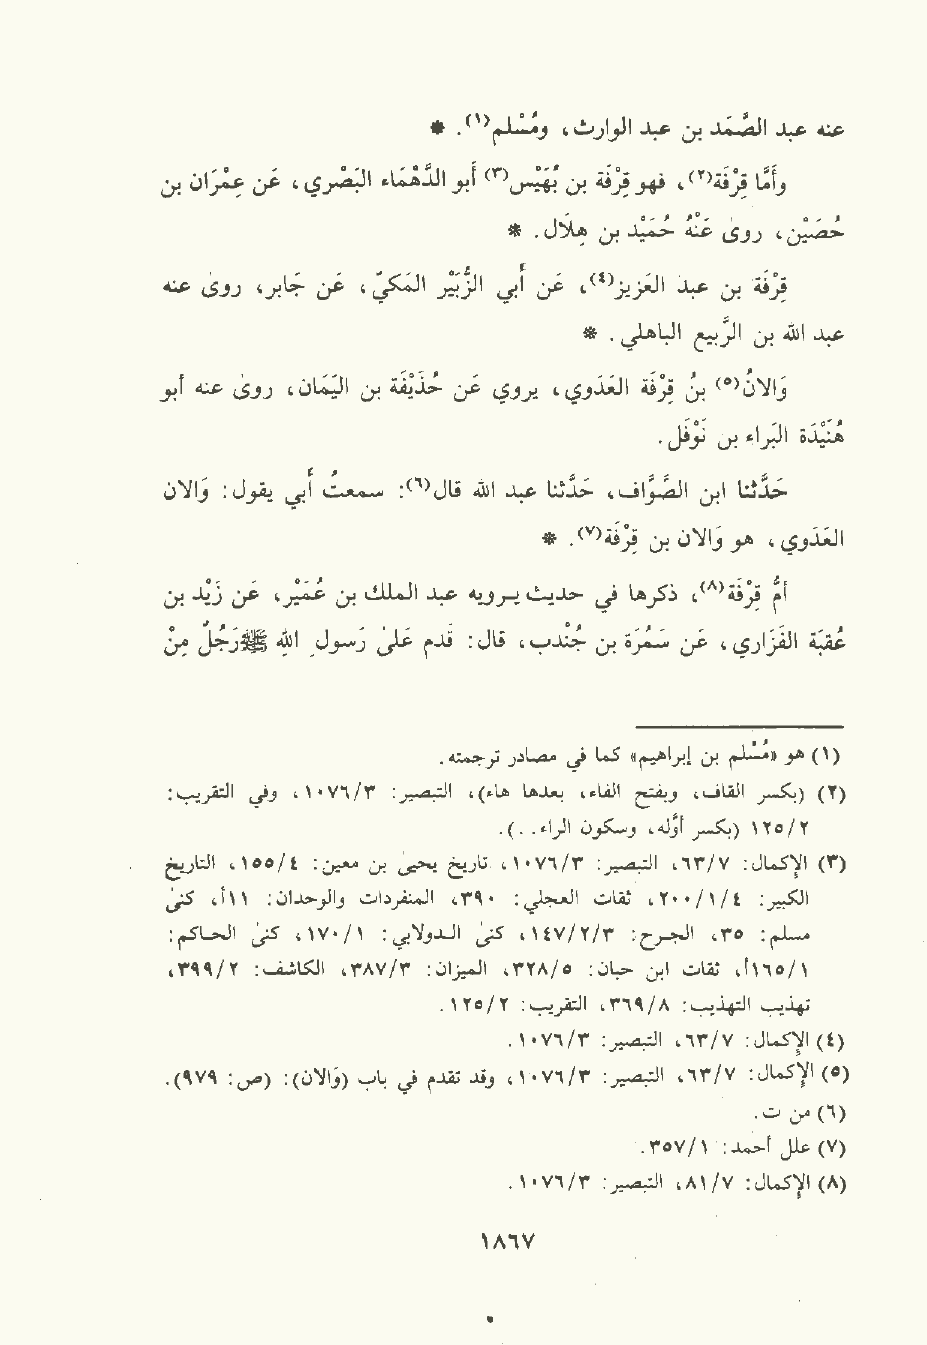 عنه عبد الصَّمَد بن عبد الوارث، ومُسْلم(١). *
وأَمَّا قِرْفَة(٢)، فهو قِرْفَة بن بُهَيْس(٣) أبو الدَّهْمَاء البَصْري، عَن عِمْرَان بن
حُصَيْن، روىٰ عَنْهُ حُمَيْد بن هِلَال. *
قِرْفَة بن عبد العَزيز(٤)، عَن أبي الزُّبَيْر المَكيّ، عَن جَابر، روىٰ عنه
عبد الله بن الرَّبيع الباهلي. *
وَالانُ(٥) بنُ قِرْفَة العَدَوي، يروي عَن حُذَيْفَة بن اليَمَان، روىٰ عنه أبو
هُنَيْدَة البَراء بن نَوْفَل.
حَدَّثنا ابن الصَّوَّاف، حَدَّثنا عبد الله قال(٦): سمعتُ أبي يقول: وَالان
العَدَوي، هو وَالان بن قِرْفَة(٧). *
أمُّ قِرْفَة(٨)، ذكرها في حديث يرويه عبد الملك بن عُمَيْر، عَن زَيْد بن
عُقبَة الفَزَاري، عَن سَمُرَة بن جُنْدب، قال: قَدم عَلىٰ رَسول اللهِ ﷺ رَجُلٌ مِنْ
(١) هو «مُسْلم بن إبراهيم» كما في مصادر ترجمته.
(٢) (بكسر القاف، وبفتح الفاء، بعدها هاء)، التبصير: ١٠٧٦/٣، وفي التقريب:
١٢٥/٢ (بكسر أوَّله، وسكون الراء. .).
(٣) الإكمال: ٦٣/٧، التبصير: ١٠٧٦/٣، تاريخ يحيىٰ بن معين: ١٥٥/٤، التاريخ
الكبير: ٢٠٠/١/٤، ثقات العجلي: ٣٩٠، المنفردات والوحدان: ١١أ، كنىٰ
مسلم: ٣٥، الجرح: ١٤٧/٢/٣، كنىٰ الدولابي: ١٧٠/١، كنىٰ الحاكم:
١٦٥/١أ، ثقات ابن حبان: ٣٢٨/٥، الميزان: ٣٨٧/٣، الكاشف: ٣٩٩/٢،
تهذيب التهذيب: ٣٦٩/٨، التقريب: ١٢٥/٢.
(٤) الإكمال: ٦٣/٧، التبصير: ١٠٧٦/٣.
(٥) الإكمال: ٦٣/٧، التبصير: ١٠٧٦/٣، وقد تقدم في باب (وَالان): (ص: ٩٧٩).
(٦) من ت.
(٧) علل أحمد: ٣٥٧/١.
(٨) الإكمال: ٨١/٧، التبصير: ١٠٧٦/٣.
١٨٦٧